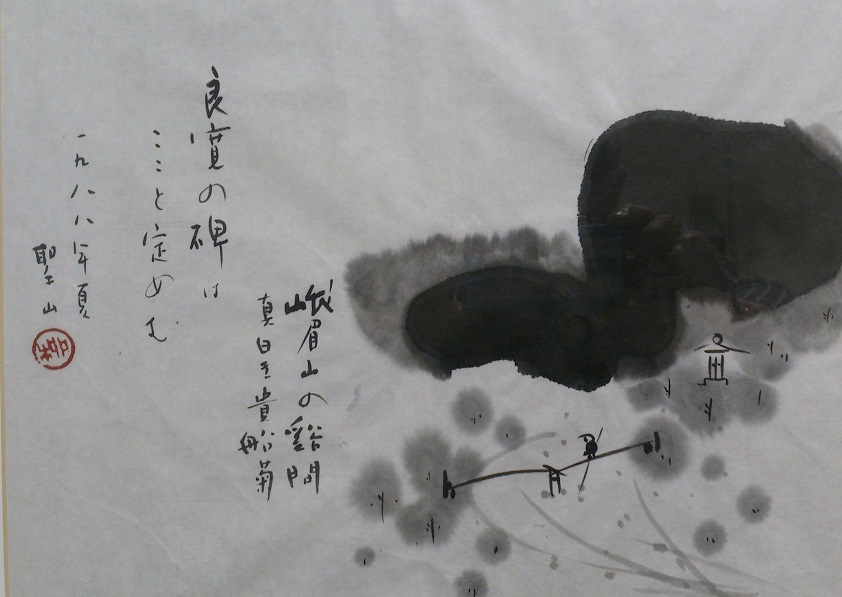 峨眉山の谿間
真白き貴船菊
良寛の碑は
ここと定めむ
一九八八年夏
聖山